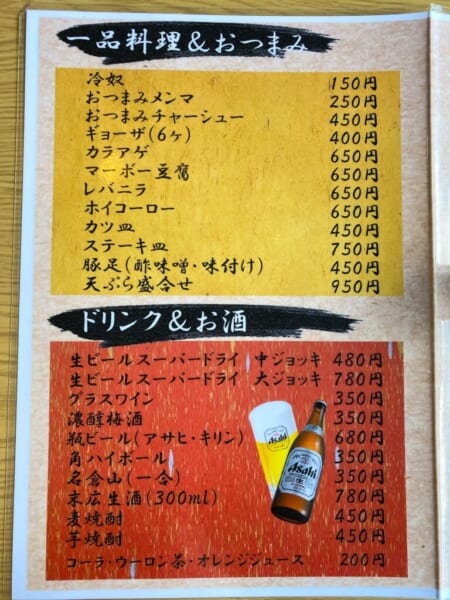 一品料理&おつまみ
冷奴 150円
おつまみメンマ 250円
おつまみチャーシュー 450円
ギョーザ(6ヶ) 400円
カラアゲ 650円
マーボー豆腐 650円
レバニラ 650円
ホイコーロー 650円
カツ皿 450円
ステーキ皿 750円
豚足(酢味噌・味付け) 450円
天ぷら盛合せ 950円
ドリンク&お酒
生ビールスーパードライ 中ジョッキ 480円
生ビールスーパードライ 大ジョッキ 780円
グラスワイン 350円
濃醇梅酒 350円
瓶ビール(アサヒ・キリン) 680円
角ハイボール 350円
名倉山(一合) 350円
末広生酒(300ml) 780円
麦焼酎 450円
芋焼酎 450円
コーラ・ウーロン茶・オレンジジュース 200円
Asahi
Asahi
生